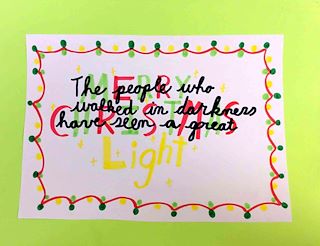 MERRY
CHRISTMAS
The people who
walked in darkness
have seen a great
Light